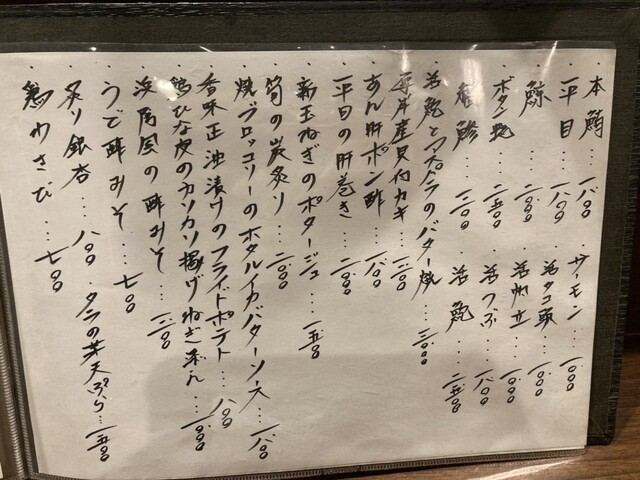 本鮪…一八〇〇
サーモン…一〇〇〇
平目…一八〇〇
活タコ頭…一〇〇〇
鯨…二〇〇〇
活帆立…一〇〇〇
ボタン蛯…二五〇〇
活つぶ…一八〇〇
活鮑…二五〇〇
活鮑とアスパラのバター焼…三〇〇〇
厚岸産貝付カキ…
あん肝ポン酢…一八〇〇
平目の肝巻き…二〇〇〇
新玉ねぎのポタージュ…一五〇〇
筍の炭炙り…二〇〇〇
焼ブロッコリーのホタルイカバターソース…一八〇〇
香味正油漬けのフライドポテト…八〇〇
鶏ひな皮のカリカリ揚げねぎ添え…一〇〇〇
の酢みそ…
うで酢みそ…七〇〇
炙り銀杏…八〇〇
タラの芽天ぷら…一五〇〇
わさび…七〇〇